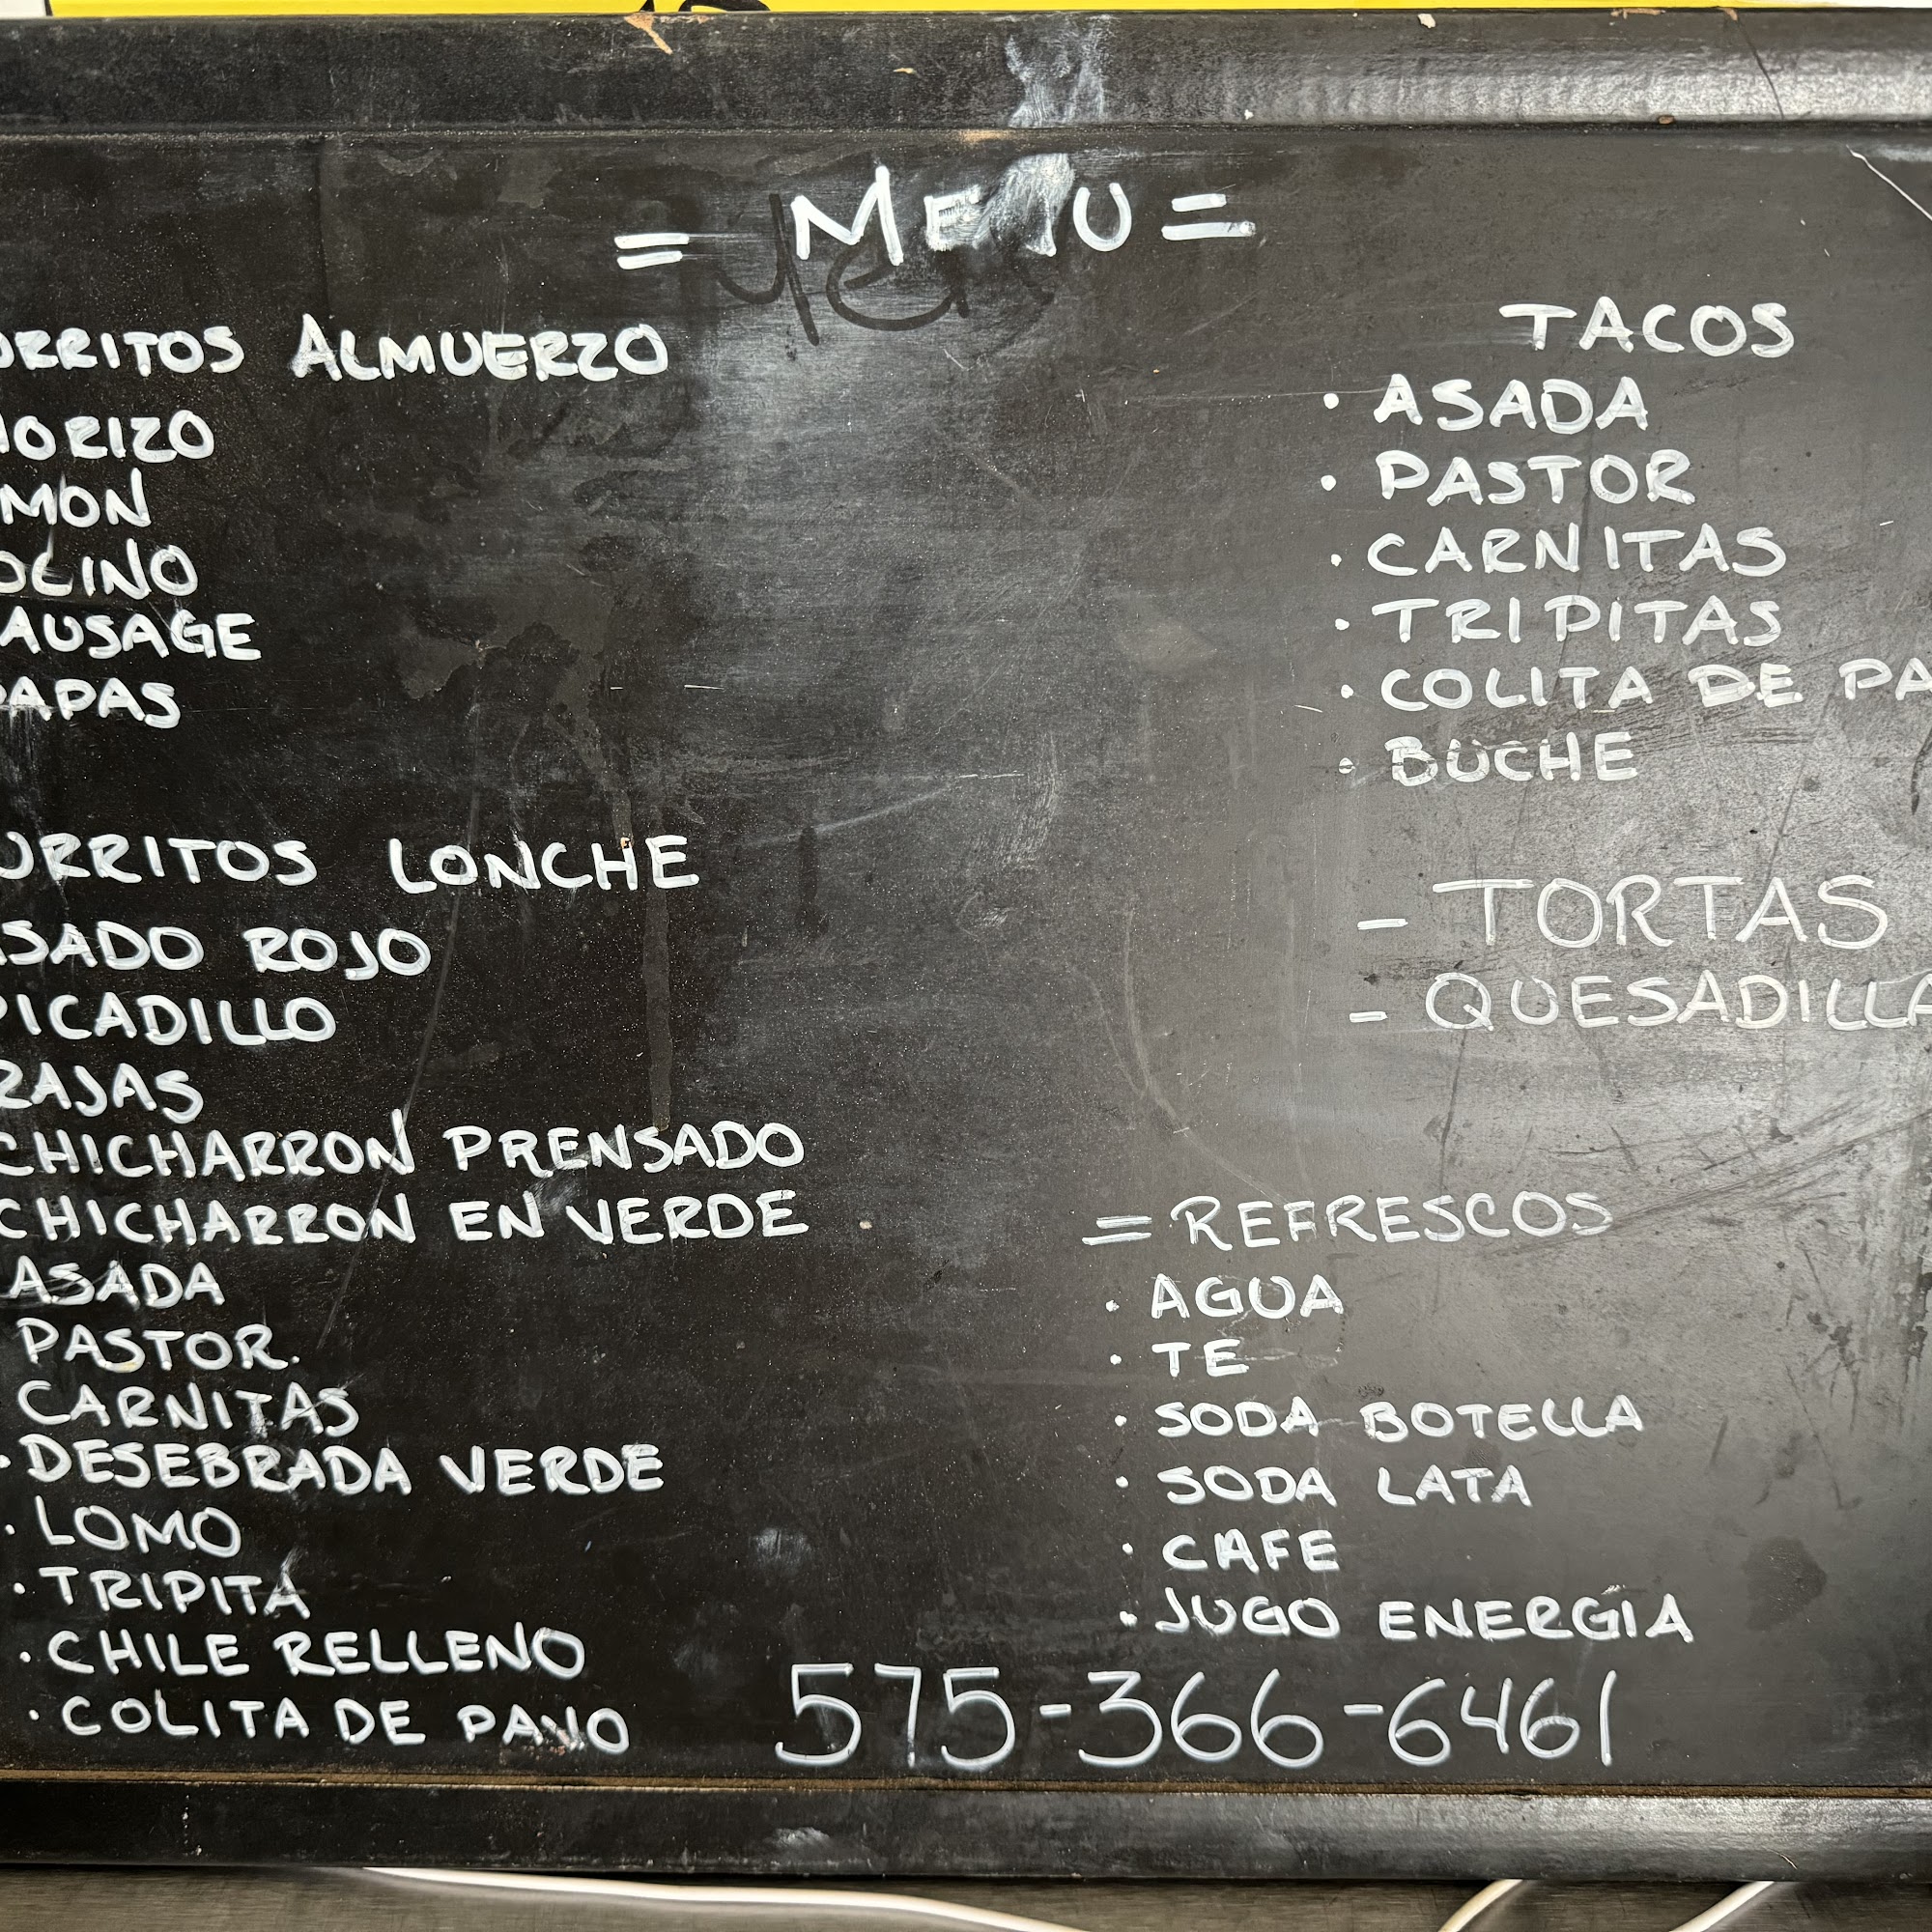 = MENU =
URRITOS ALMUERZO
HORIZO
MON
OCINO
AUSAGE
PAPAS
URRITOS LONCHE
ASADO ROJO
PICADILLO
RAJAS
CHICHARRON PRENSADO
CHICHARRON EN VERDE
ASADA
PASTOR.
CARNITAS
· DESEBRADA VERDE
· LOMO
· TRIPITA
· CHILE RELLENO
· COLITA DE PAVO
TACOS
· ASADA
· PASTOR
· CARNITAS
· TRIPITAS
· COLITA DE PA
· BUCHE
- TORTAS
- QUESADILLA
= REFRESCOS
· AGUA
· TE
· SODA BOTELLA
· SODA LATA
· CAFE
· JUGO ENERGÍA
575-366-6461